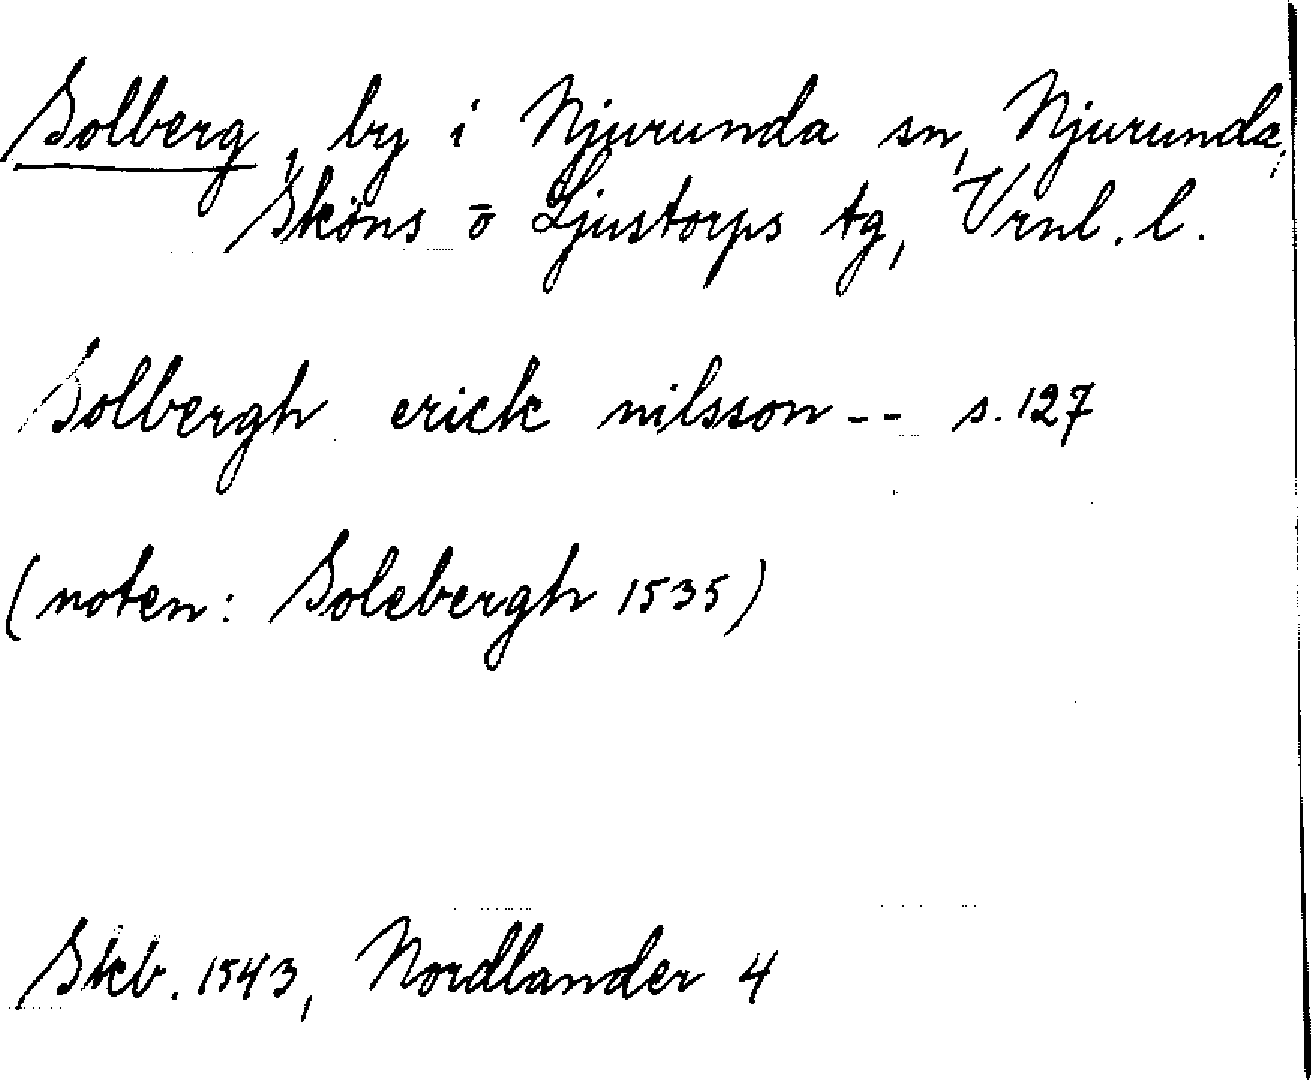 Solberg, by i Njurunda sn, Njurunda,
Sköns o Ljustorps tg, Vrnl. l.
Solbergh erick nilsson -- s. 127
(noten: Solebergh 1535)
Skb. 1543, Nordlander 4